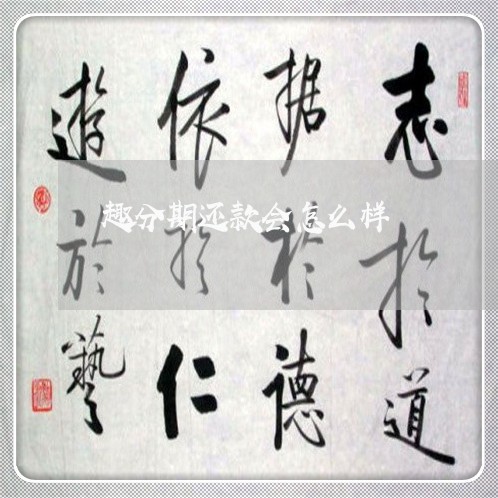 志於道
据於德
依於仁
遊於藝
趣分期还款会怎么样